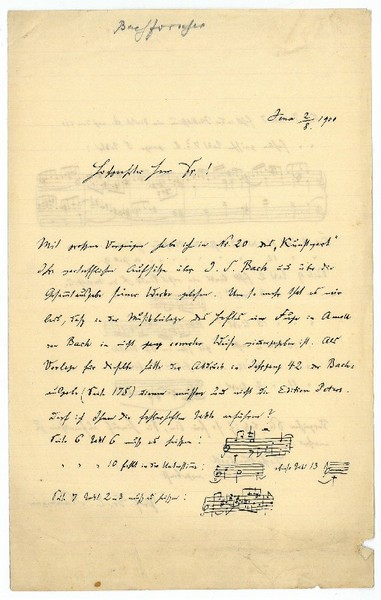 Bachforscher
Jena 2/8. 1900
Hochgeehrter Herr Dr.!
Mit großem Vergnügen habe ich in No. 20 des „Kunstwart"
Ihre vortrefflichen Aufsätze über J. S. Bach und über die
Gesamtausgabe seiner Werke gelesen. Um so mehr that es mir
leid, daß in der Musikbeilage des Heftes eine Fuge in Amoll
von Bach in nicht ganz correcter Weise wiedergegeben ist. Als
Vorlage für dieselbe hätte der Abdruck in Jahrgang 42 der Bach-
ausgabe (Seite 175) dienen müssen und nicht die Edition Peters.
Darf ich Ihnen die fehlerhaften Takte anführen?
Seite 6 Takt 6 muß es heißen:
" " 10 fehlt in der Unterstimme: Takt 13
Seite 7 Takt 2 und 3 muß es heißen: